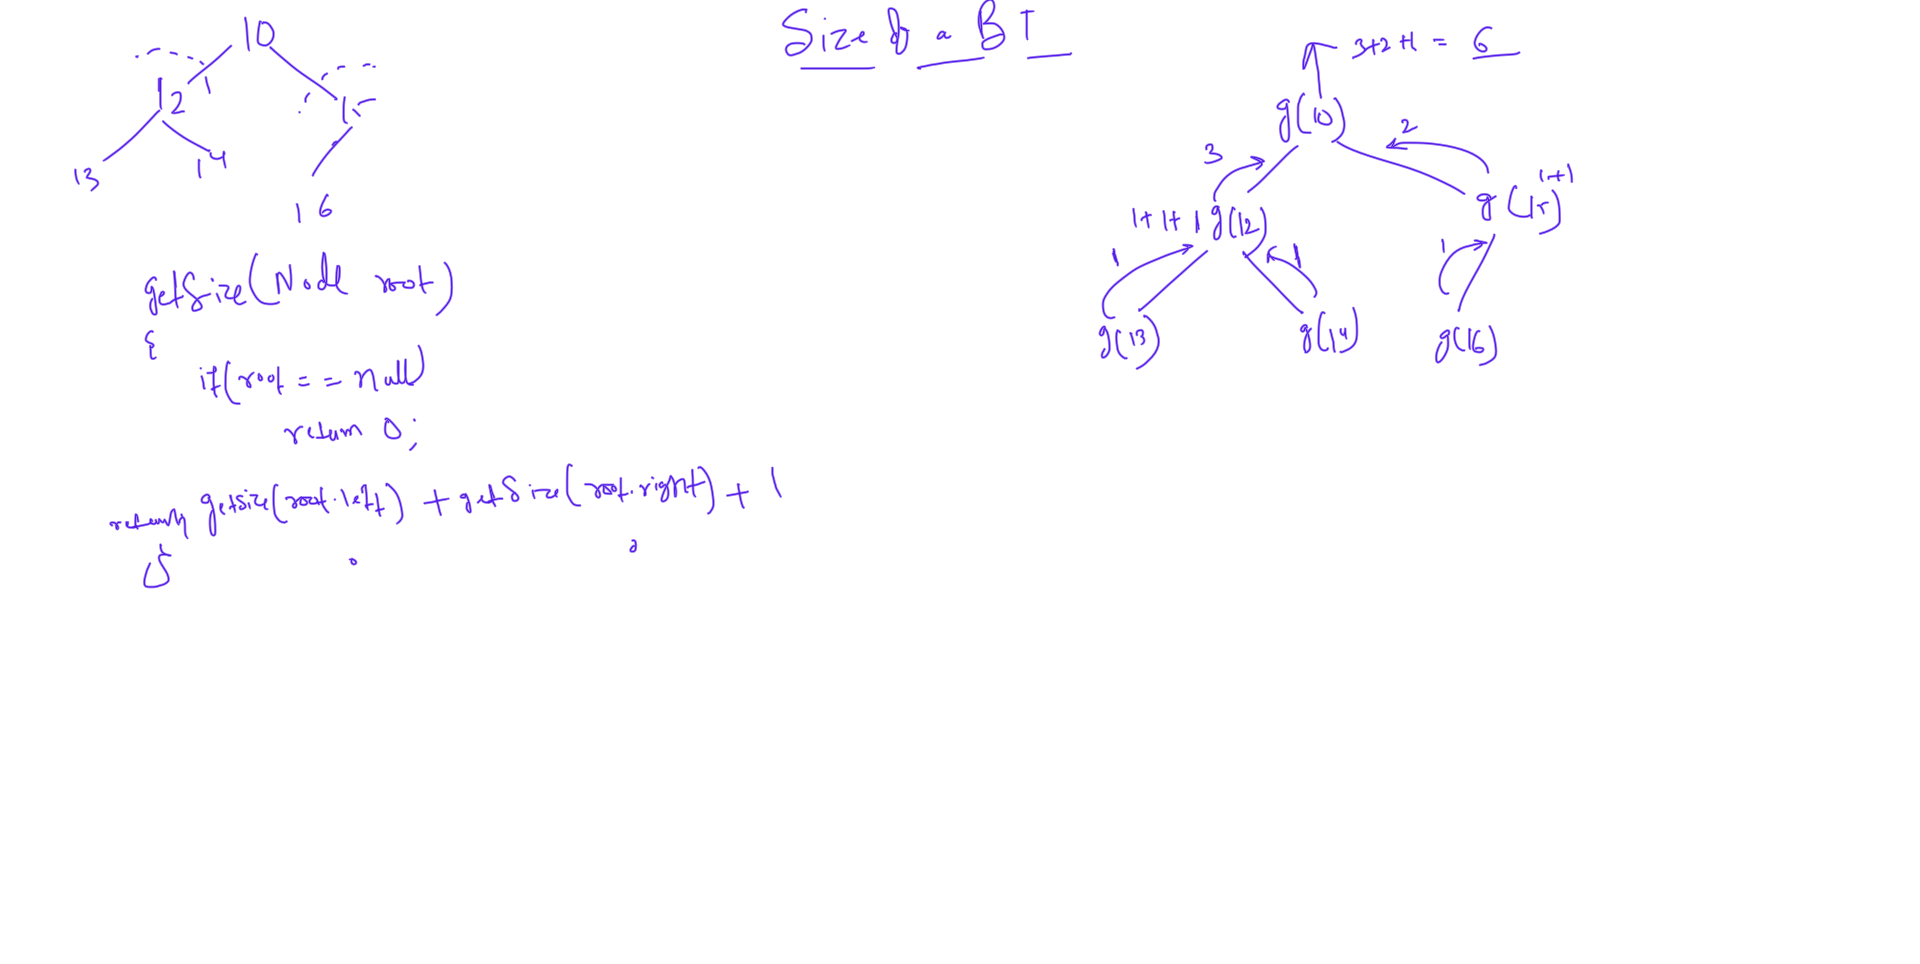 Size of a BT
10
12 15
13 14
16
getSize(Node root)
{
if(root == null)
return 0;
return getsize(root.left) + getSize(root.right) + 1
}
3+2+1 = 6
g(10)
3 2
1+1+1 g(12) g(15) 1+1
1 1 1
g(13) g(14) g(16)